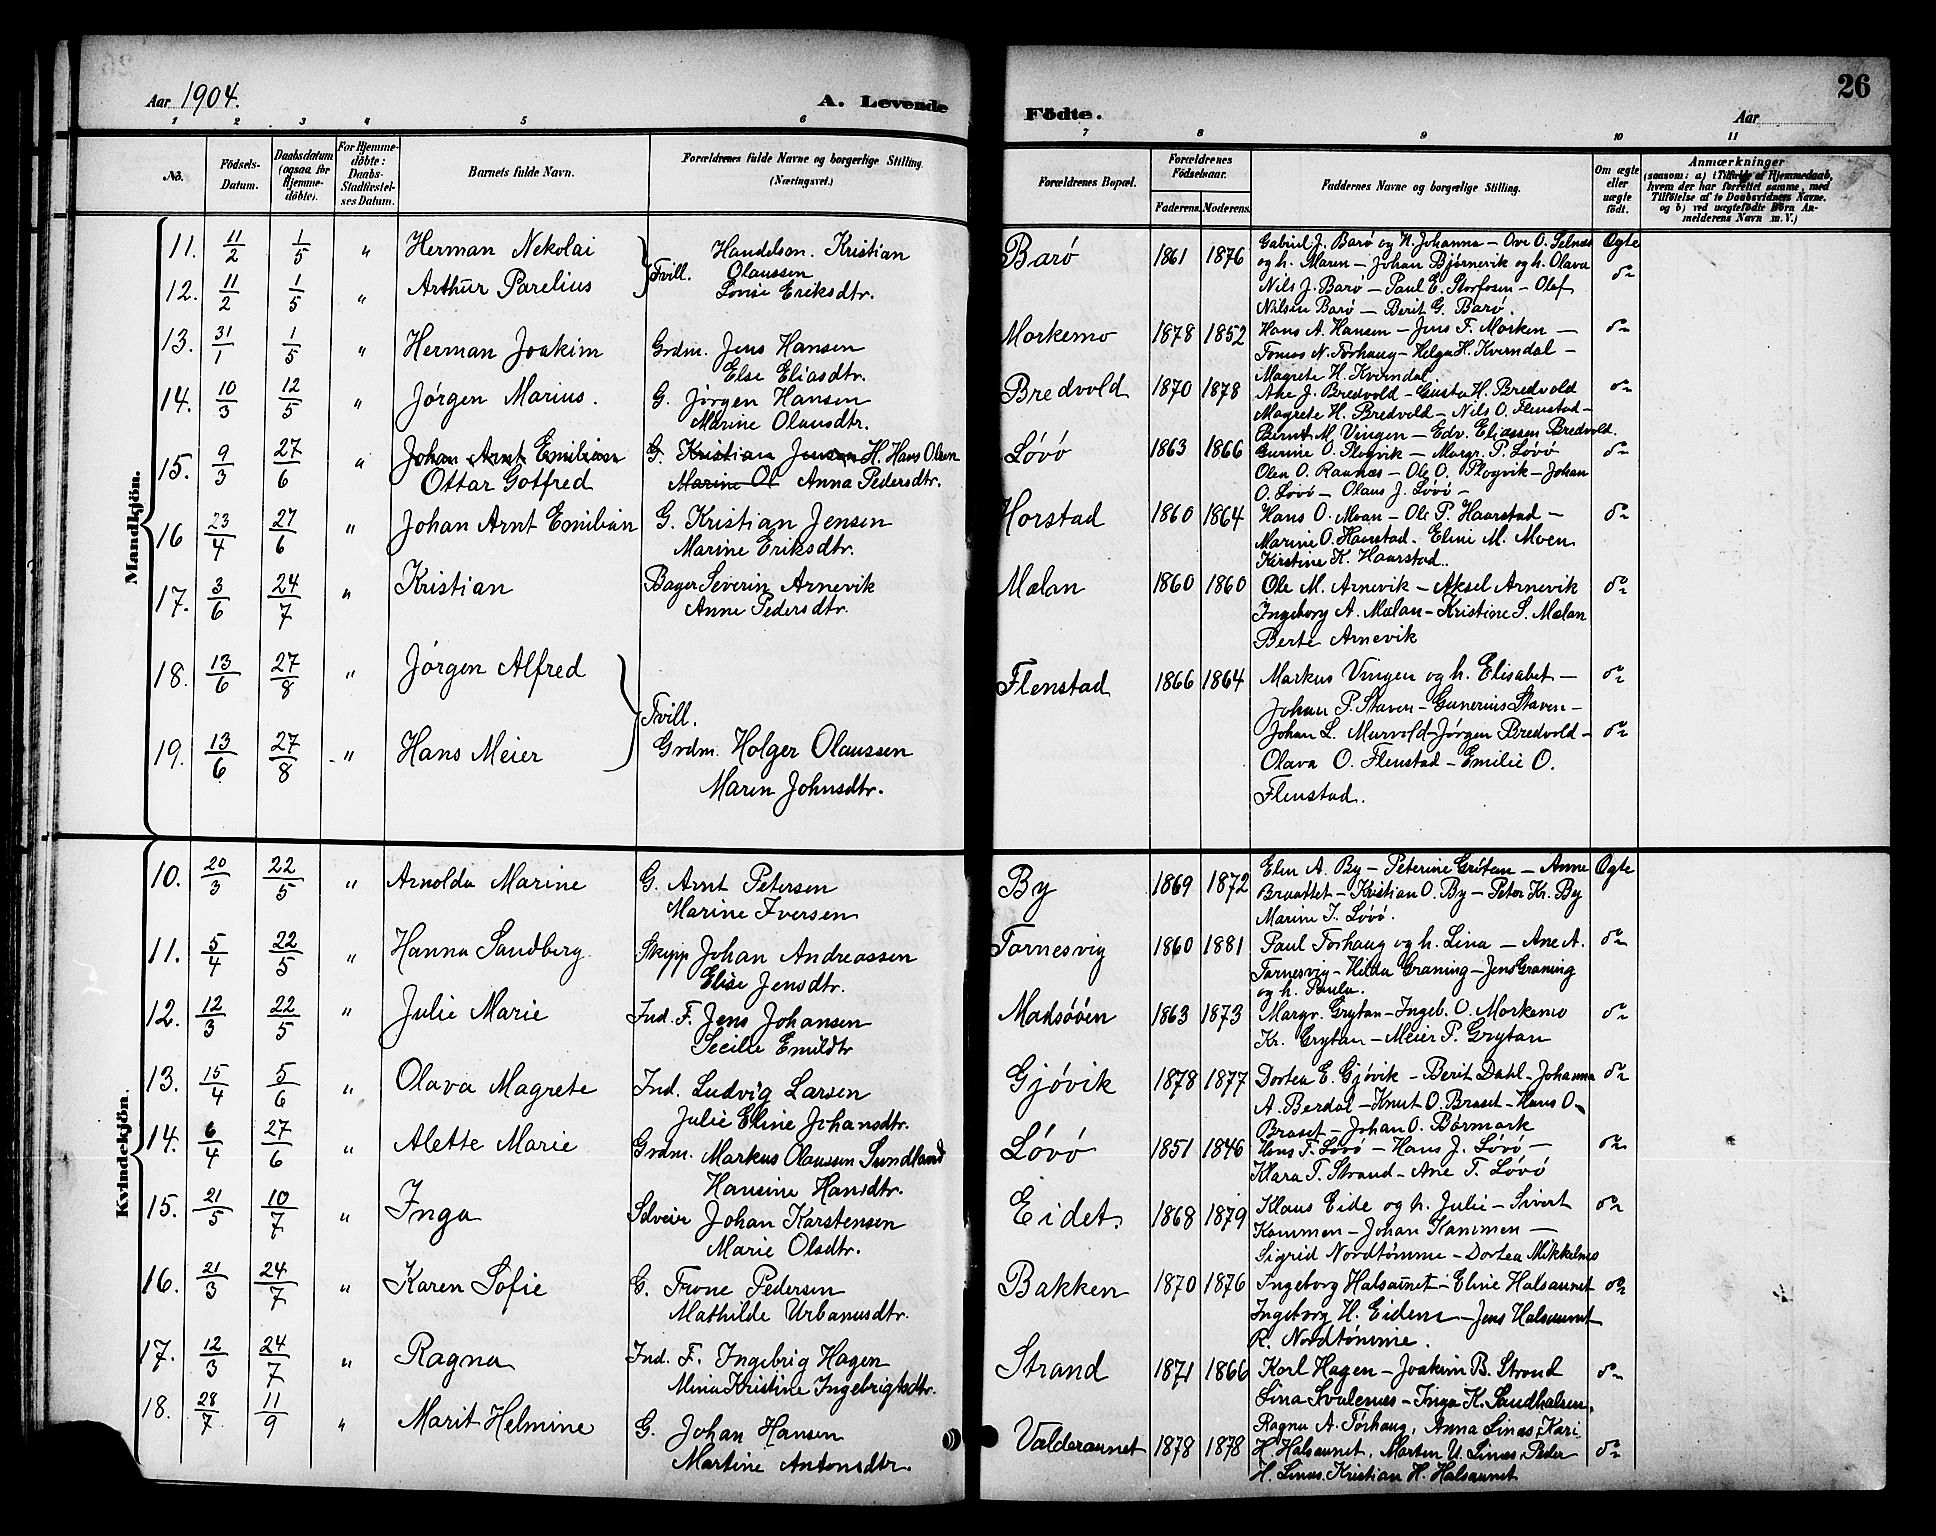 26
Aar 1904.
A. Levende
Födte.
Aar
1 2 3 4 5 6 7 8 9 10 11
No.
Födsels-Datum.
Daabsdatum (ogsaa for Hjemmedöbte).
For Hjemmedöbte: Daabs-Stadfæstelses Datum.
Barnets fulde Navn.
Forældrenes fulde Navne og borgerlige Stilling. (Næringsvei.)
Forældrenes Bopæl.
Forældrenes Födselsaar.
Faderens. Moderens.
Faddernes Navne og borgerlige Stilling.
Om ægte eller uægte födt.
Anmærkninger
(saasom: a) Tilfælde af Hjemmedaab,
hvem der har forrettet samme, med
Tilföielse af to Daabsvidners Navne.
og b) ved uægtefödte Börn Anmelderens Navn m. V.)
Mandkjön.
11. 11/2 1/5 " Herman Nekolai Tvill. Handelsm. Kristian Olaussen Barø 1861 1876 Gabriel J. Barø og H. Johanna - Ove O. Selnes Ægte
12. 11/2 1/5 " Arthur Parelius Lovise Eriksdtr. og h. Maren - Johan Bjørnevik og h. Olava do
Nils J. Barø - Paul E. Storfosen - Olaf
Nilsen Barø - Berit G. Barø.
13. 31/1 1/5 " Herman Joakim Grdm. Jens Hansen Morkemo 1878 1852 Hans A. Hansen - Jens F. Morken - do
Else Eliasdtr. Tomas N. Torhaug - Helga H. Kverndal -
Magrete H. Kverndal
14. 10/3 12/5 " Jørgen Marius. G. Jørgen Hansen Bredvold 1870 1878 Ane J. Bredvold - Gusta H. Bredvold do
Marine Olausdtr. Magrete H. Bredvold - Nils O. Flenstad -
Bernt M. Vingen - Edv. Eliassen Bredvold.
15. 9/3 27/6 " Johan Arnt Emilian G. Kristian Jensen H. Hans Olsen Løvø 1863 1866 Gurine O. Plogvik - Margr. P. Løvø do
Ottar Gotfred Marine Ol Anna Pedersdtr. Olen O. Raanæs - Ole O. Plogvik - Johan
O. Løvø - Olaus J. Løvø -
16 23/4 27/6 " Johan Arnt Emilian G. Kristian Jensen Horstad 1860 1864 Hans O. Moan - Ole P. Haarstad - do
Marine Eriksdtr. Marine O. Haarstad. Eline M. Moen
Kirstine K. Haarstad..
17. 3/6 24/7 " Kristian Bager Severin Arnevik Mælan 1860 1860 Ole M. Arnevik - Aksel Arnevik do
Anne Pedersdtr. Ingeborg A. Mælan - Kristine S. Mælan
Berte Arnevik
18. 13/6 27/8 " Jørgen Alfred Flenstad 1866 1864 Markus Vingen og h. Elisabet - do
Tvill. Johan P. Staven - Gunerius Staven -
19. 13/6 27/8 " Hans Meier Grdm. Holger Olaussen Johan L. Murvold - Jørgen Bredvold - do
Maren Johnsdtr. Olava O. Flenstad - Emilie O.
Flenstad.
Kvindekjön.
10. 20/3 22/5 " Arnolda Marine G. Arnt Petersen By 1869 1872 Elen A. By - Peterine Grötan - Anne Ægte
Marine Iversen Braattet - Kristian O. By - Peter Kr. By
Marine I. Løvø.
11. 5/4 22/5 " Hanna Sandberg. Skipp Johan Andreassen Tarnesvig 1860 1881 Paul Torhaug og h. Lina - Ane A. do
Elise Jensdtr. Tarnesvig - Hilda Graning - Jens Graning
og h. Paula.
12. 12/3 22/5 " Julie Marie Ind. F. Jens Johansen Madsøöen 1863 1873 Margr. Grytan - Ingeb. O. Morkemo do
Secilie Emildtr Kr. Grytan - Meier P. Grytan
13. 15/4 5/6 " Olava Magrete Ind. Ludvig Larsen Gjøvik 1878 1877 Dortea E. Gjøvik - Berit Dahl - Johanna do
Julie Eline Johansdtr. A. Berdal - Knut O. Braset - Hans O.
Braset - Johan O. Børmark
14. 6/4 27/6 " Alette Marie Grdm. Markus Olaussen Sundland Løvø 1851 1846 Hans T. Løvø - Hans J. Løvø - do
Hansine Hansdtr. Klara T. Strand - Ane T. Løvø
15. 21/5 10/7 " Inga Selveier Johan Karstensen Eidet. 1868 1879 Klaus Eide og h. Julie - Sivert do
Marie Olsdtr. Kammen - Johan Kammen -
Sigrid Nordtømme - Dortea Mikkelnes
16. 21/3 24/7 " Karen Sofie G. Trone Pedersen Bakken 1870 1876 Ingeborg Halsaunet - Eline Halsaunet do
Mathilde Urbanusdtr. Ingeborg H. Eidem - Jens Halsaunet
R. Nordtømme.
17. 12/3 24/7 " Ragna Ind. F. Ingebrig Hagen Strand 1871 1866 Karl Hagen - Joakim B. Strand do
Mina Kristine Ingebrigtsdtr. Lina Svalenes - Inga K. Sandhalsen.
18. 28/7 11/9 " Marit Helmine G. Johan Hansen Valderaunet 1878 1878 Ragna A. Tørhaug, Anna Linas, Kari
Martine Antonsdtr. H. Halsaunet, Marten U. Linas, Peder do
H. Linas. Kristian H. Halsaunet